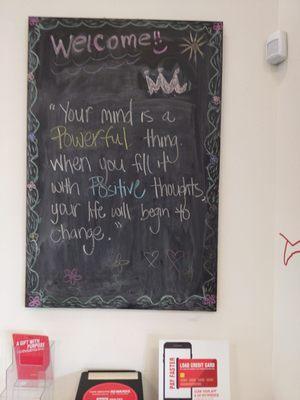 Welcome!!
"Your mind is a
Powerful thing.
When you fill it
with Positive thoughts,
your life will begin to
change."
A GIFT WITH
PURPOSE
PAY FASTER
LOAD CREDIT CARD